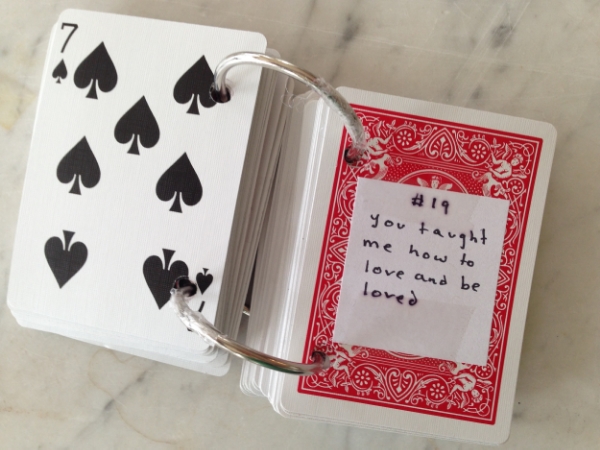 7
#19
you taught
me how to
love and be
loved